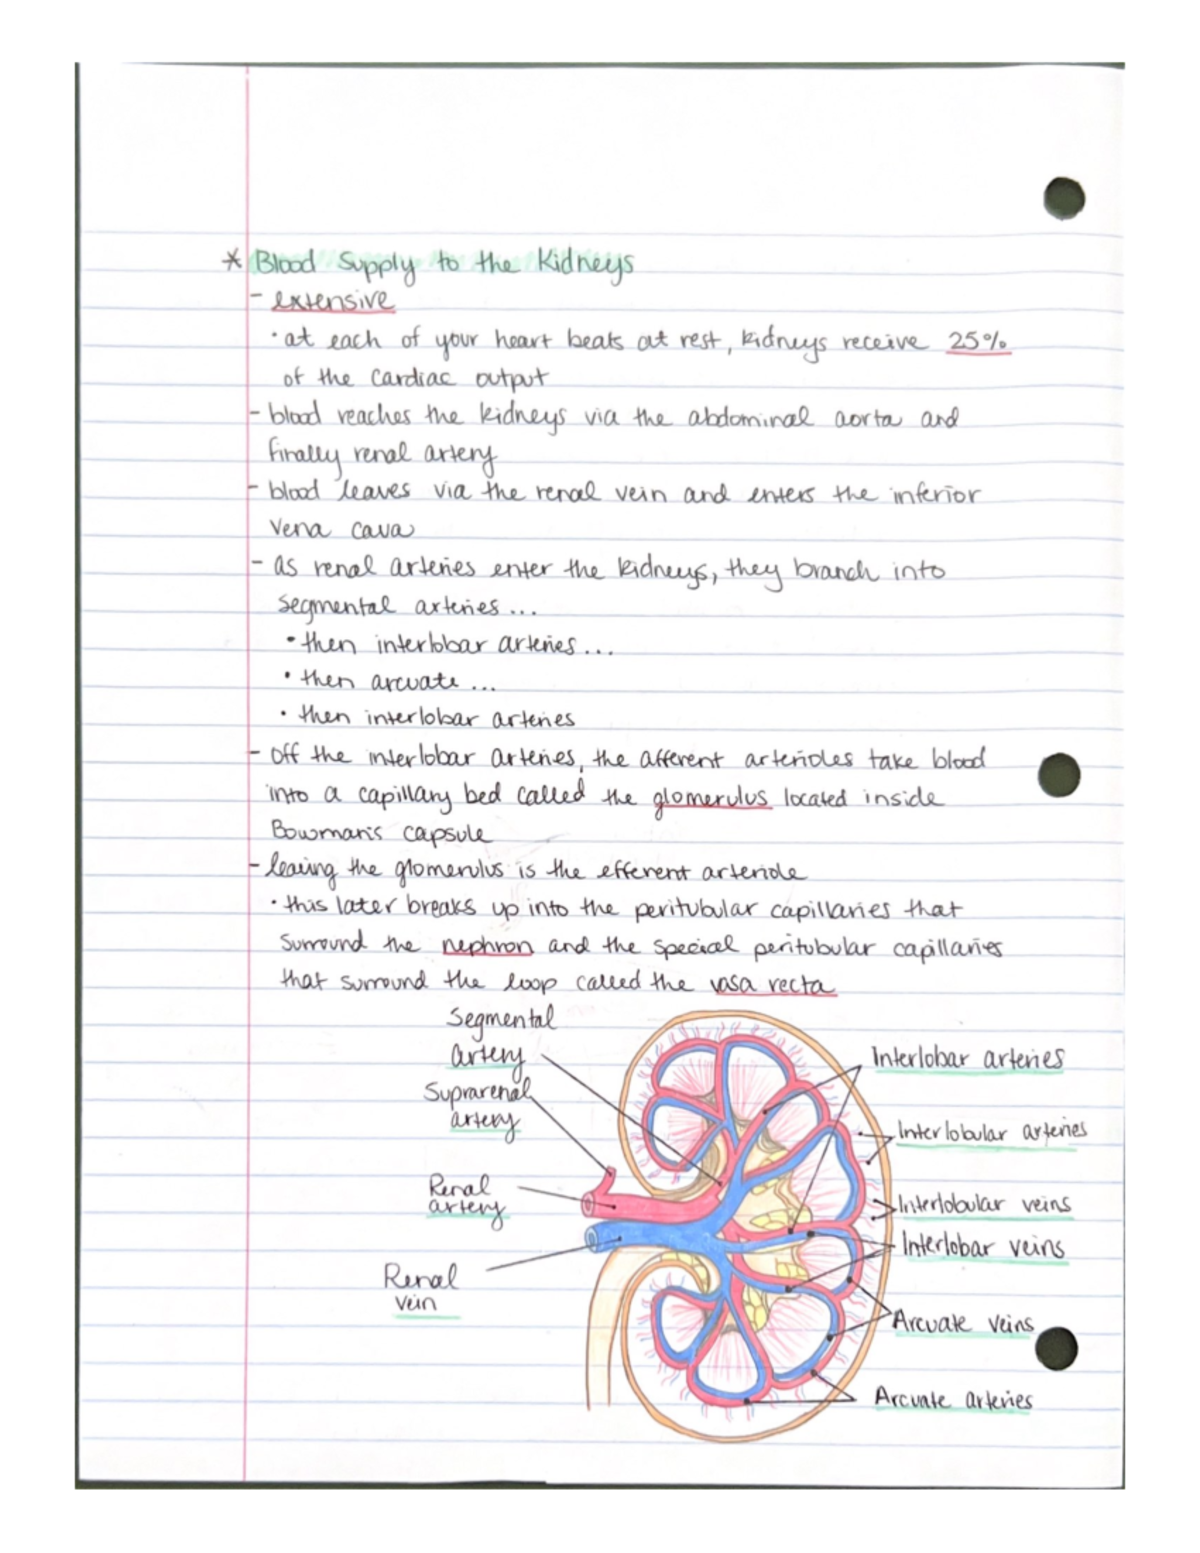 * Blood Supply to the Kidneys
- extensive
• at each of your heart beats at rest, kidneys receive 25%
of the cardiac output
- blood reaches the kidneys via the abdominal aorta and
finally renal artery
- blood leaves via the renal vein and enters the inferior
vena cava
- as renal arteries enter the kidneys, they branch into
segmental arteries...
• then interlobar arteries...
• then arcuate...
• then interlobar arteries
- off the interlobar arteries, the afferent arterioles take blood
into a capillary bed called the glomerulus located inside
Bowman's capsule
- leaving the glomerulus is the efferent arteriole
• this later breaks up into the peritubular capillaries that
surround the nephron and the special peritubular capillaries
that surround the loop called the vasa recta
Segmental
artery
Suprarenal
artery
Renal
artery
Renal
vein
Interlobar arteries
Interlobular arteries
Interlobular veins
Interlobar veins
Arcuate veins
Arcuate arteries